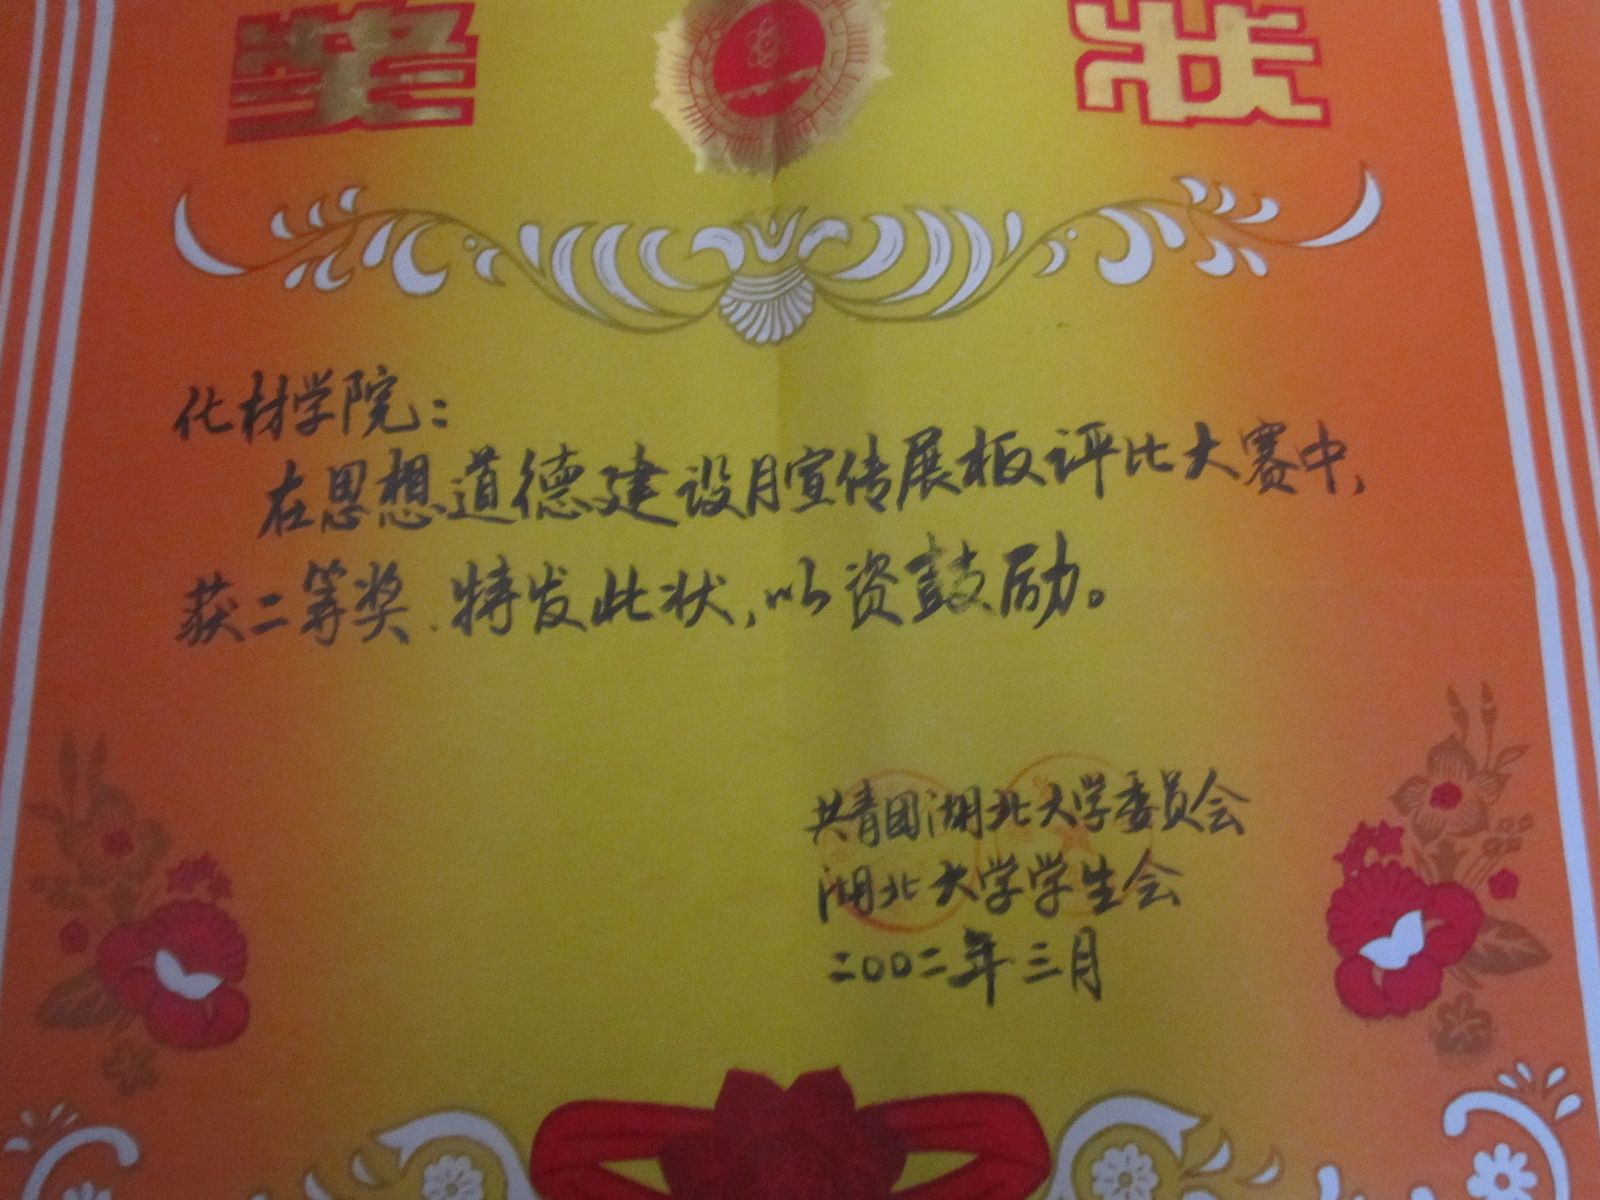 奖状
化材学院：
在思想道德建设月宣传展板评比大赛中，
获二等奖.特发此状，以资鼓励。
共青团湖北大学委员会
湖北大学学生会
二00二年三月